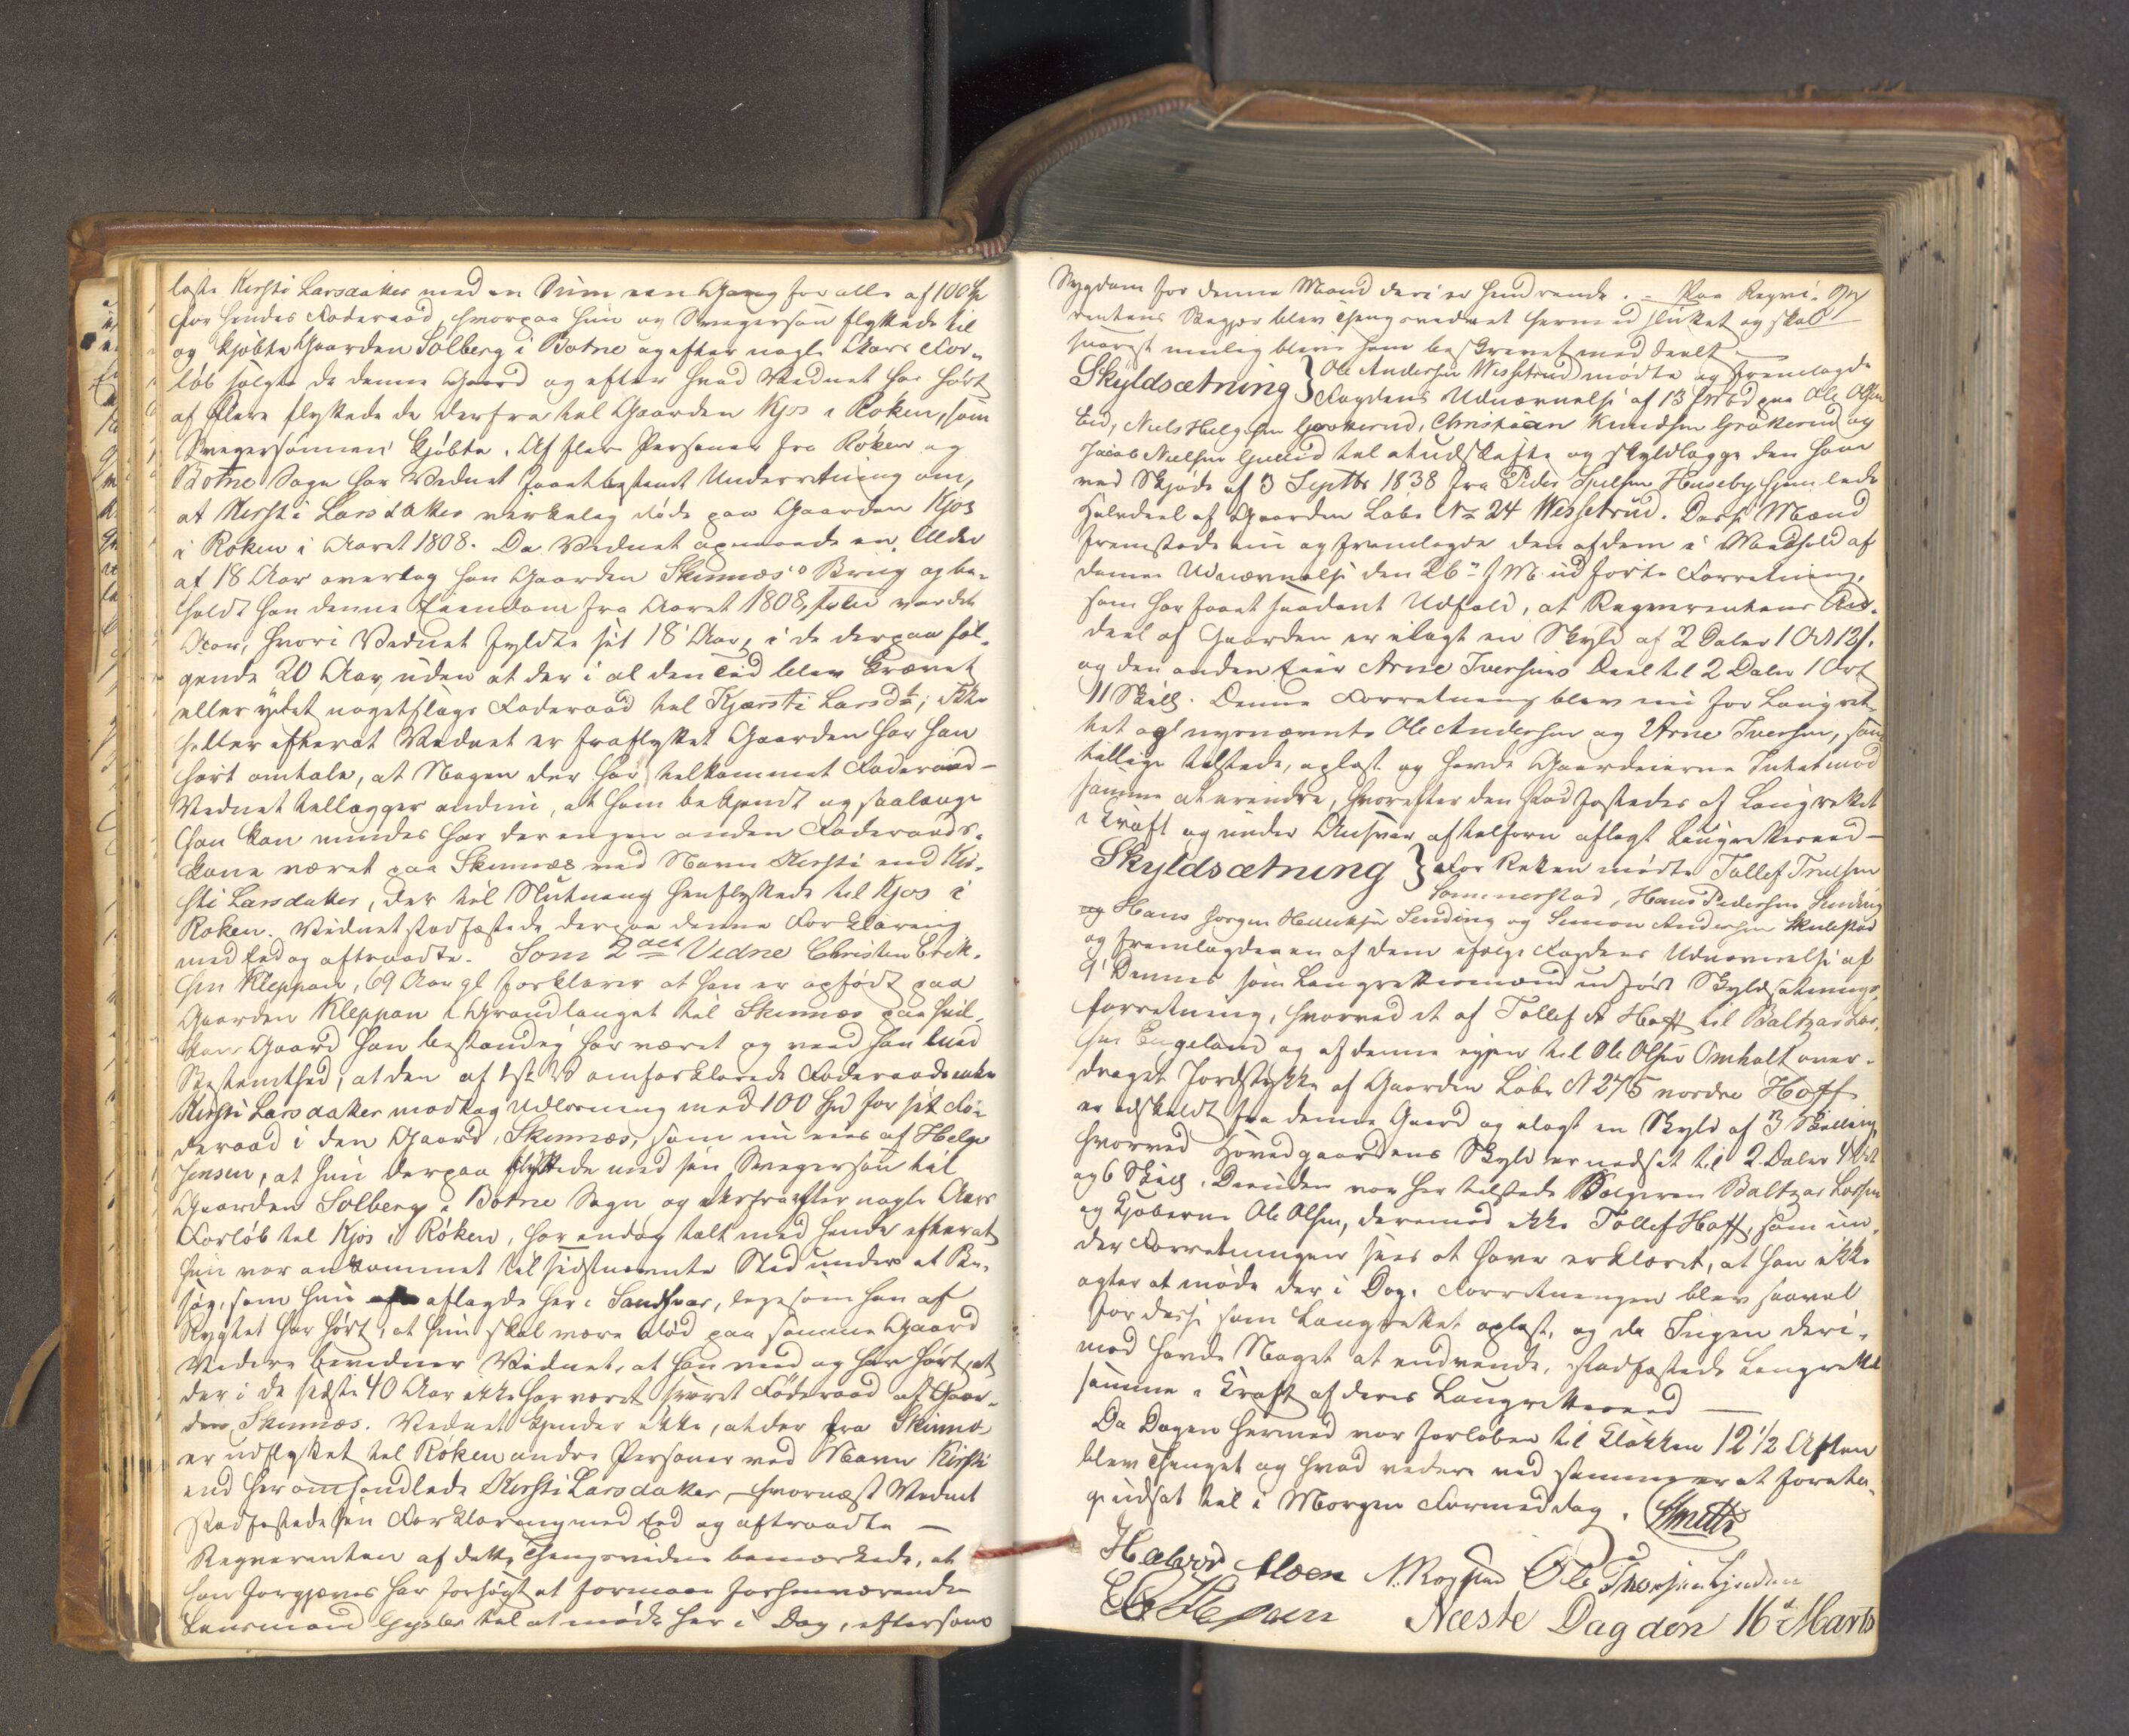 løste Kirsti Larsdatter med en Sum een Gang for alle af 100 Spd
for hendes Føderaad, hvorpaa hun og Svigersøn flyttede til
og kjøbte Gaarden Solberg i Botne og efter nogle Aars For-
løb solgte de denne Gaard og efter hvad Vidnet har hørt
af flere flyttede de derfra til Gaarden Kjos i Røken, som
Svigersønnen kjøbte. Af flere Personer fra Røken og
Botne Sogn har Vidnet faaet bestemt Underretning om,
at Kirsti Larsdatter virkelig døde paa Gaarden Kjos
i Røken i Aaret 1808. Da Vidnet opnaaede en Alder
af 18 Aar overtog han Gaarden Skinnæs's Brug og be-
holdt han denne Eiendom fra Aaret 1808, hvilket var det
Aar, hvori Vidnet fyldte sit 18 Aar, i de derpaa føl-
gende 20 Aar, uden at der i al den Tid blev krævet
eller ydet nogetslags Føderaad til Kjersti Larsdtr; ikke
heller efterat Vidnet er fraflyttet Gaarden har han
hørt omtale, at Nogen der har tilkommet Føderaad –
Vidnet tillægger endnu, at ham bekjendt og saalænge
han kan mindes har der ingen anden Føderaads-
kone været paa Skinnæs ved Navn Kirsti end Kir-
sti Larsdatter, der til Slutning henflyttede til Kjos i
Røken. Vidnet stadfæstede derpaa denne Forklaring
med Eed og aftraadte. Som 2det Vidne Christen Erik-
sen Kleppan, 69 Aar gl. forklarer at han er opfødt paa
Gaarden Kleppan i Grandlauget til Skinnæs paa hvil-
ken Gaard han bestandig har været og veed han med
Bestemthed, at den af 1ste V. omforklarede Føderaadsenke
Kirsti Larsdatter modtog Udløsning med 100 Spd for sit Fø-
deraad i den Gaard, Skinnæs, som nu eies af Helge
Jensen, at hun derpaa flyttede med sin Svigersøn til
Gaarden Solberg i Botne Sogn og derfra efter nogle Aars
Forløb til Kjos i Røken, har endog talt med hende efterat
hun var ankommet til sidstnævnte Sted under et Be-
søg, som hun aflagde her i Sandsvær, ligesom han af
Rygtet har hørt, at hun skal være død paa samme Gaard
Videre bevidner Vidnet, at han veed og har hørt, at
der i de sidste 40 Aar ikke har været svaret Føderaad af Gaar-
den Skinnæs. Vidnet kjender ikke, at der fra Skinnæs
er udflyttet til Røken andre Personer ved Navn Kirsti
end heromhandlede Kirsti Larsdatter, – hvornæst Vidnet
stadfæstede sin Forklaring med Eed og aftraadte –
Requirenten af dette Thingsvidne bemærkede, at
han forgjæves har forsøgt at formaae forhenværende
Lensmand Gysler til at møde her i Dag, eftersom
Sygdom for denne Mand deri er hindrende. – Paa Reqvi-
rentens Begjær blev Thingsvidnet hermed sluttet og skal
snarest mulig blive ham beskrevet meddeelt –
Skyldsætning } Ole Andersen Wissetrud mødte og fremlagde
Fogdens Udnævnelse af 13 f. M. paa Ole Olsen
Eid, Niels Helgesen Grøterud, Christian Knudsen Gråterud og
Jacob Nielsen til at udskifte og skyldlægge den ham
ved Skjøde af 3 Septbr 1838 fra Peder Huseby hjemlede
Halvdeel af Gaarden Løbe No 24 Wissetrud. Disse Mænd
fremstode nu og fremlagde den af dem i Medhold af
denne Udnævnelse den 26de f. M. udførte Forretning,
som har faaet saadant Udfald, at Reqvirentens An-
deel af Gaarden er ilagt en Skyld af 2 Daler 1 Ort 12 s.
og den anden Eier Arne Iversens Deel til 2 Daler 1 Ort
11 Skill. Denne Forretning blev nu for Laugret-
tet og nysnævnte Ole Andersen og Arne Iversen, som
tillige tilstede, oplæst og havde Gaardeierne Intet mod
samme at erindre, hvorefter den stadfæstedes af Laugrettet
i Kraft og under Ansvar af tilforn aflagt Laugrettesed –
Skyldsætning } For Retten mødte Tollef Truelsen
Sommerstad, Hans Pedersen Sending
og Hans Jørgen Henriksen Sending og Simon Andersen Skulestad
og fremlagde en af dem ifølge Fogdens Udnævnelse af
9' Dennes som Laugrettesmænd udført Skyldsætnings-
forretning, hvorved et af Tollef A Hoff til Baltzar Lar-
sen Engeland og af denne igjen til Ole Olsen Omholt over-
draget Jordstykke af Gaarden Løbe N 275 nordre Hoff
er adskildt fra denne Gaard og ilagt en Skyld af 3 Skilling
hvorved Hovedgaardens Skyld er nedsat til 2 Daler 4 Ort
og 6 Skill. Desuden var her tilstede Sælgeren Baltzar Larsen
og Kjøberen Ole Olsen, derimod ikke Tollef Hoff, som un-
der Forretningen sees at have erklæret, at han ikke
agter at møde der i Dag. Forretningen blev saavel
for disse som Laugrettet oplæst, og da Ingen deri-
mod havde Noget at indvende, stadfæstede Laugrettet
samme i Kraft af deres Laugrettesed –
Da Dagen hermed var forløben til Klokken 12 1/2 Aften
blev Thinget og hvad videre ved samme er at foreta-
ge udsat til i Morgen Formiddag. Smith
Halvor Moen N. Ole
Næste Dag den 16de Marts